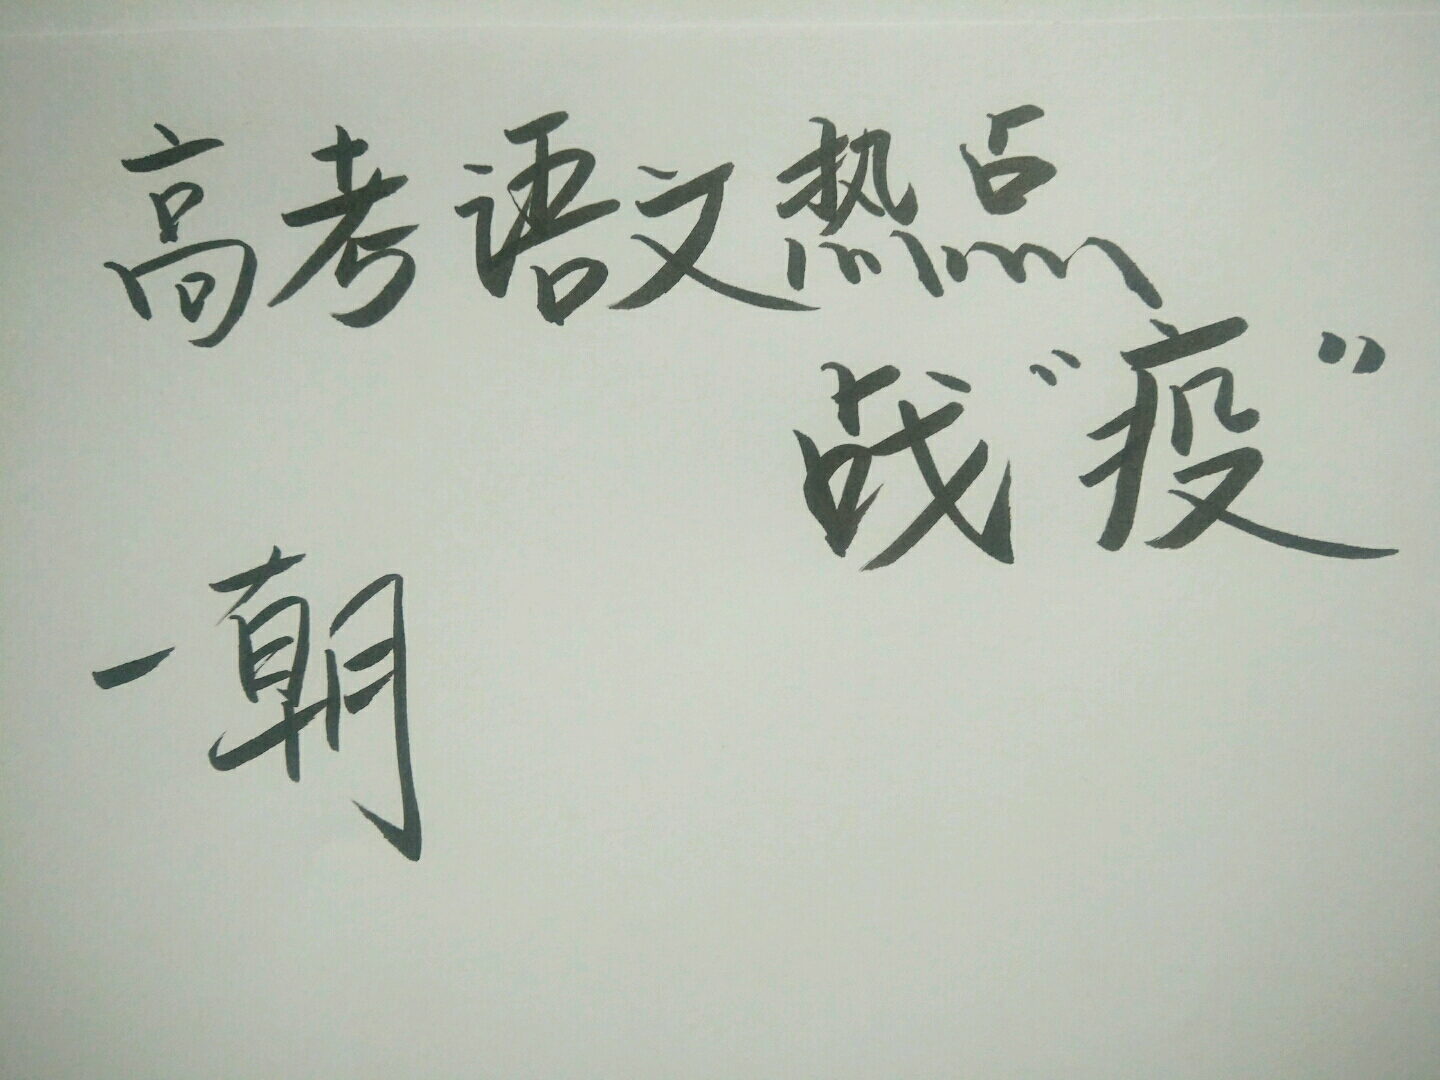 高考语文热点
战“疫”
一朝